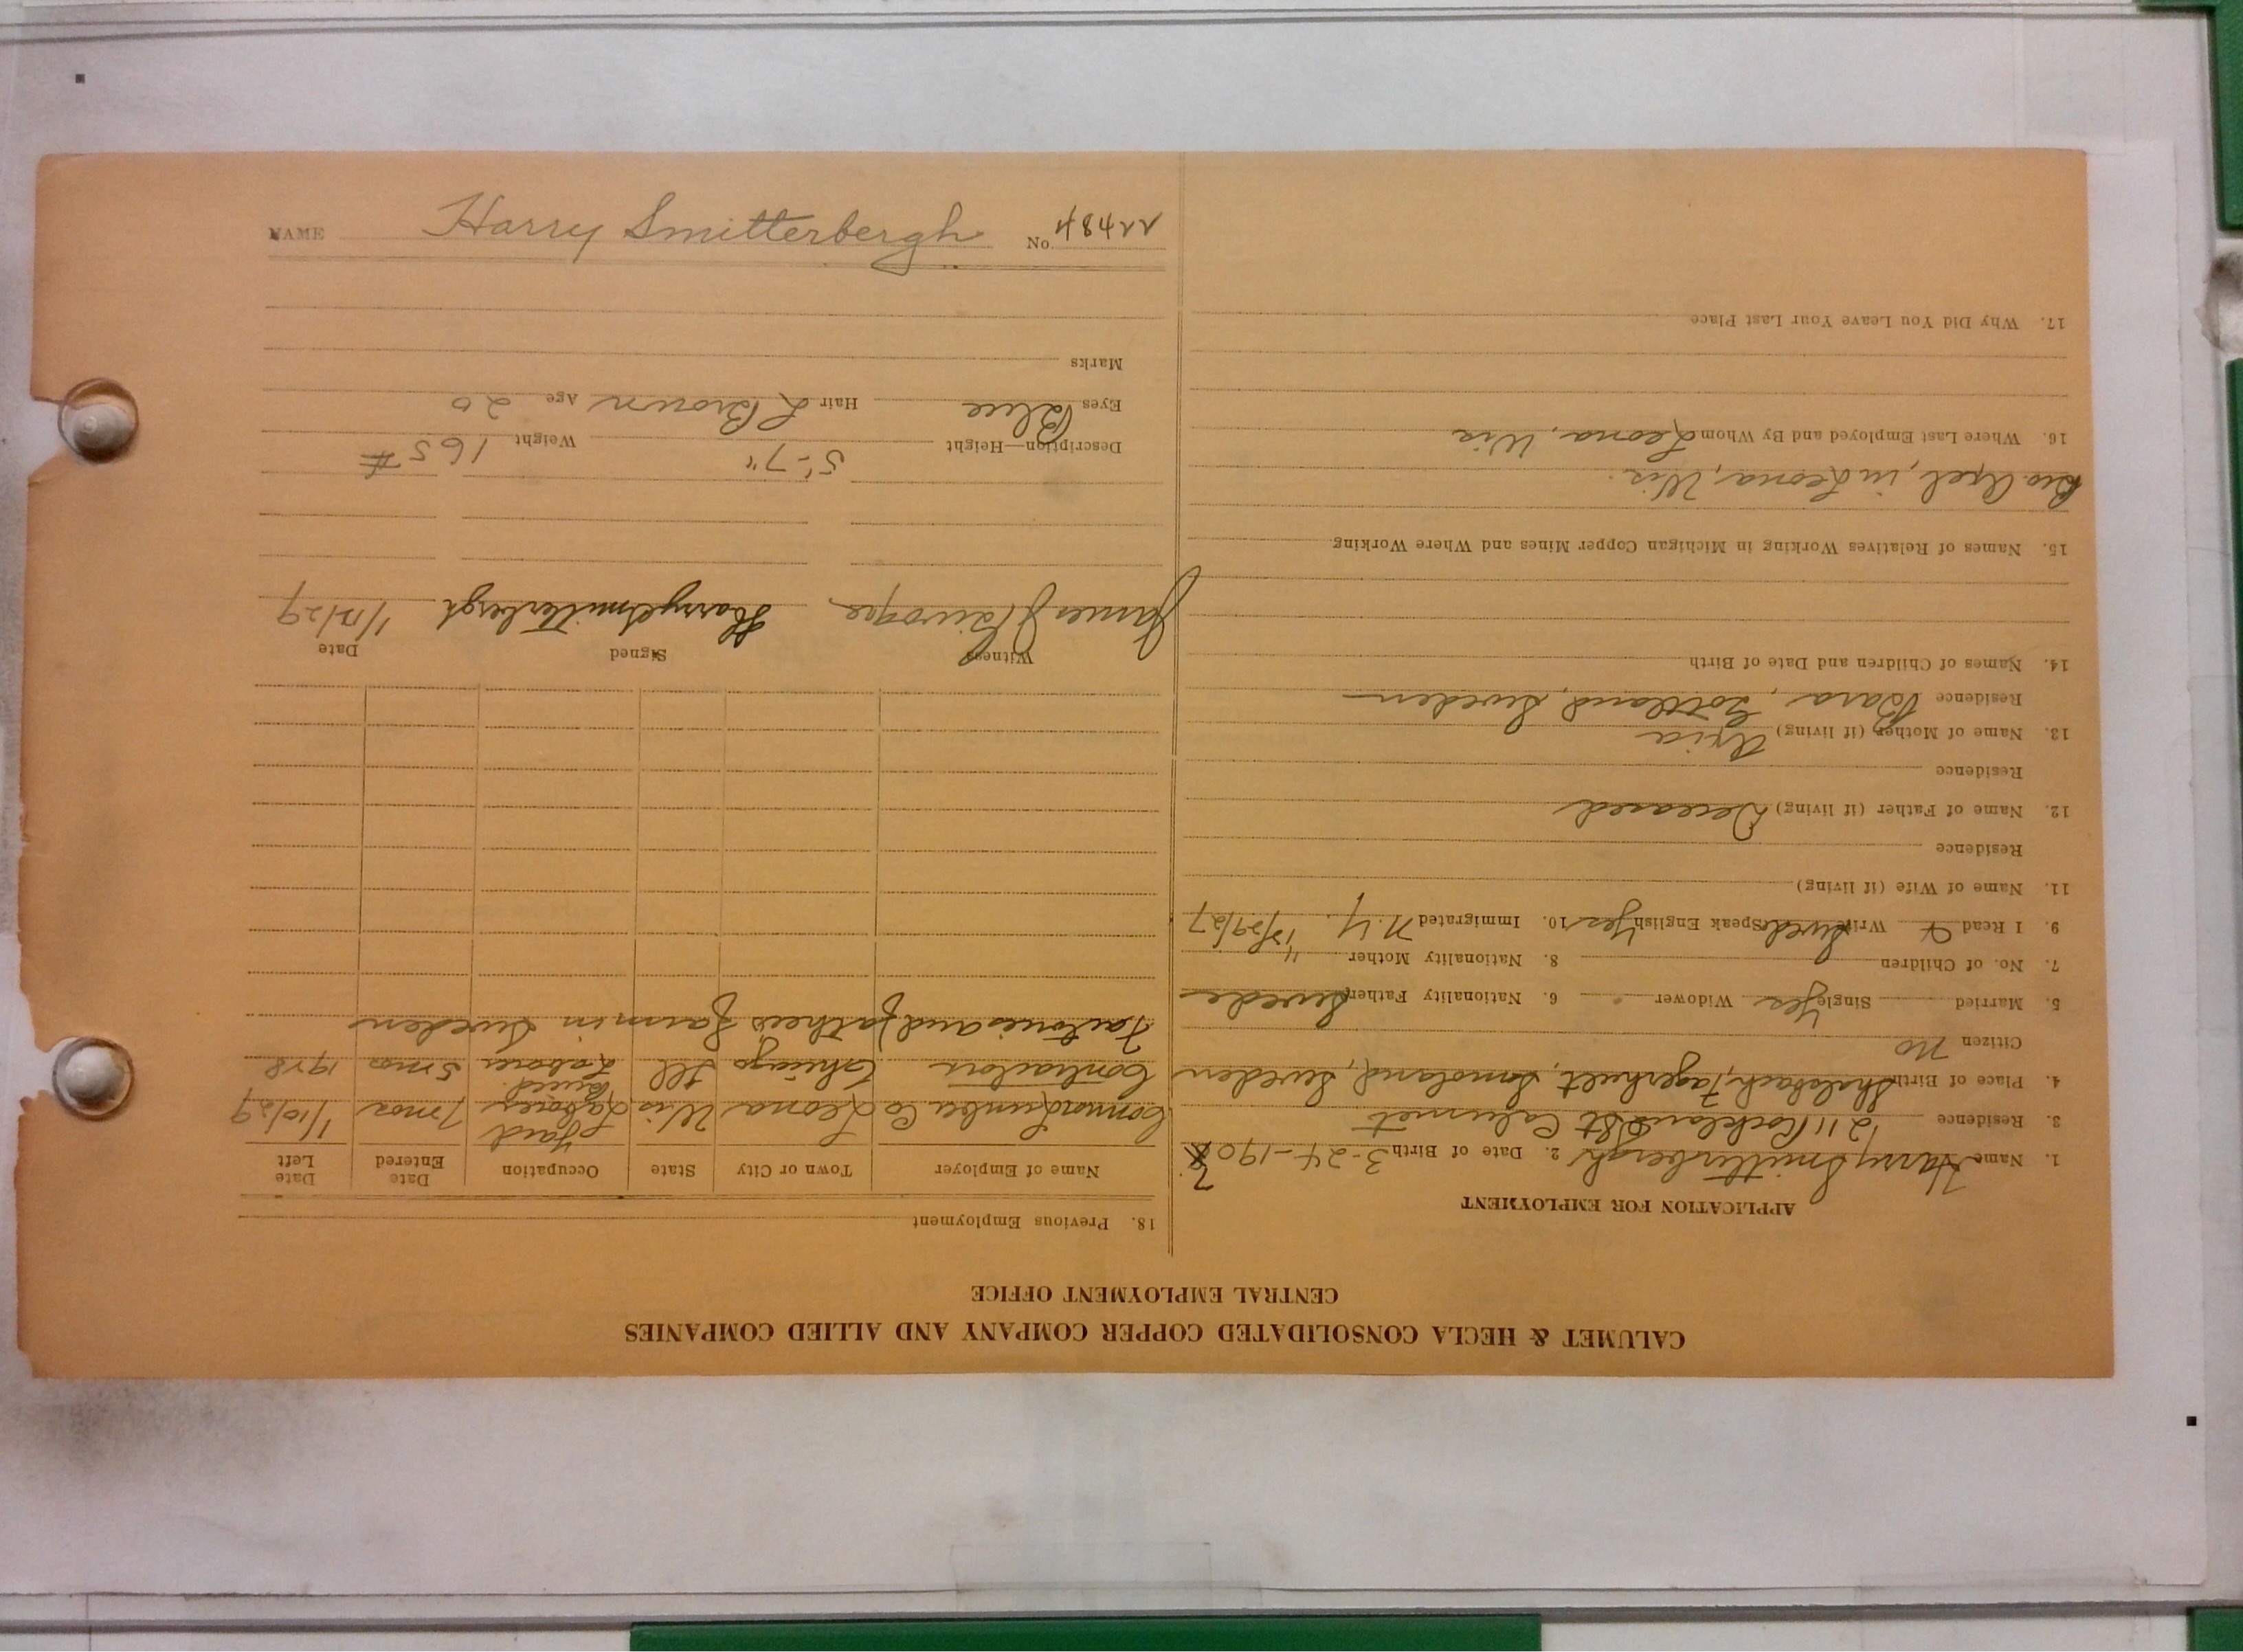 CALUMET & HECLA CONSOLIDATED COPPER COMPANY AND ALLIED COMPANIES
CENTRAL EMPLOYMENT OFFICE
APPLICATION FOR EMPLOYMENT
1. Name Harry Smitterbergh 2. Date of Birth 3-24-190 7
3. Residence 211 Rockland St Calumet
4. Place of Birth Fagerhult, Smoland, Sweden
Citizen No
5. Married Single Yes Widower 6. Nationality Father Swede
7. No. of Children 8. Nationality Mother "
9. I Read & Write Swed Speak English Yes 10. Immigrated N.Y. 12/29/27
11. Name of Wife (if living)
Residence
12. Name of Father (if living) Deceased
Residence
13. Name of Mother (if living)
Residence Bara, Gottland, Sweden
14. Names of Children and Date of Birth
15. Names of Relatives Working in Michigan Copper Mines and Where Working
Bro. Axel, in Leona, Wis.
16. Where Last Employed and By Whom Leona, Wis
17. Why Did You Leave Your Last Place
18. Previous Employment
Name of Employer Town or City State Occupation Date Entered Date Left
Connor Lumber Co Leona Wis Yard Laborer 7 mos 1/10/29
Contractors Chicago Ill Laborer 5 mos 1928
Factories and father's farm in Sweden
Witness Signed Date
James Harry Smitterbergh 1/12/29
Description—Height 5'-7" Weight 165#
Eyes Blue Hair L Brown Age 20
Marks
NAME Harry Smitterbergh No. 22484